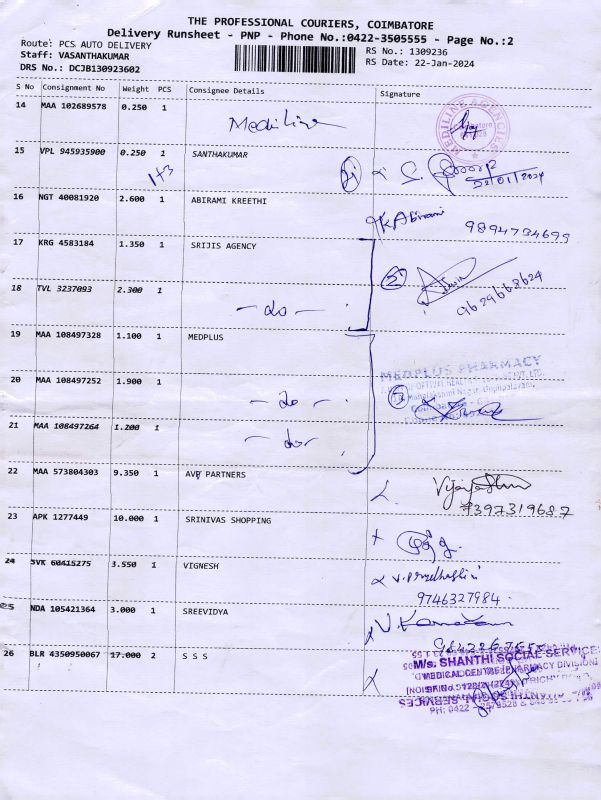 THE PROFESSIONAL COURIERS, COIMBATORE
Delivery Runsheet - PNP - Phone No.:0422-3505555 - Page No.:2
Route: PCS AUTO DELIVERY
Staff: VASANTHAKUMAR
DRS No.: DCJB130923602
RS No.: 1309236
RS Date: 22-Jan-2024
S No Consignment No Weight PCS Consignee Details Signature
14 MAA 102689578 0.250 1 Mediline
MEDILINE AGENCIES
15 VPL 945935900 0.250 1 SANTHAKUMAR
1+3
22/01/2024
16 NGT 40081920 2.600 1 ABIRAMI KREETHI
K Abirami
9894734699
17 KRG 4583184 1.350 1 SRIJIS AGENCY
2
9629668624
18 TVL 3237093 2.300 1
- do -
19 MAA 108497328 1.100 1 MEDPLUS
MEDPLUS PHARMACY
20 MAA 108497252 1.900 1
- do -
21 MAA 108497264 1.200 1
- do -
22 MAA 573804303 9.350 1 AVP PARTNERS
7397319687
23 APK 1277449 10.000 1 SRINIVAS SHOPPING
24 SVK 60415275 3.550 1 VIGNESH
9746327984
25 NDA 105421364 3.000 1 SREEVIDYA
26 BLR 4350950067 17.000 2 S S S
M/s. SHANTHI SOCIAL SERVICE